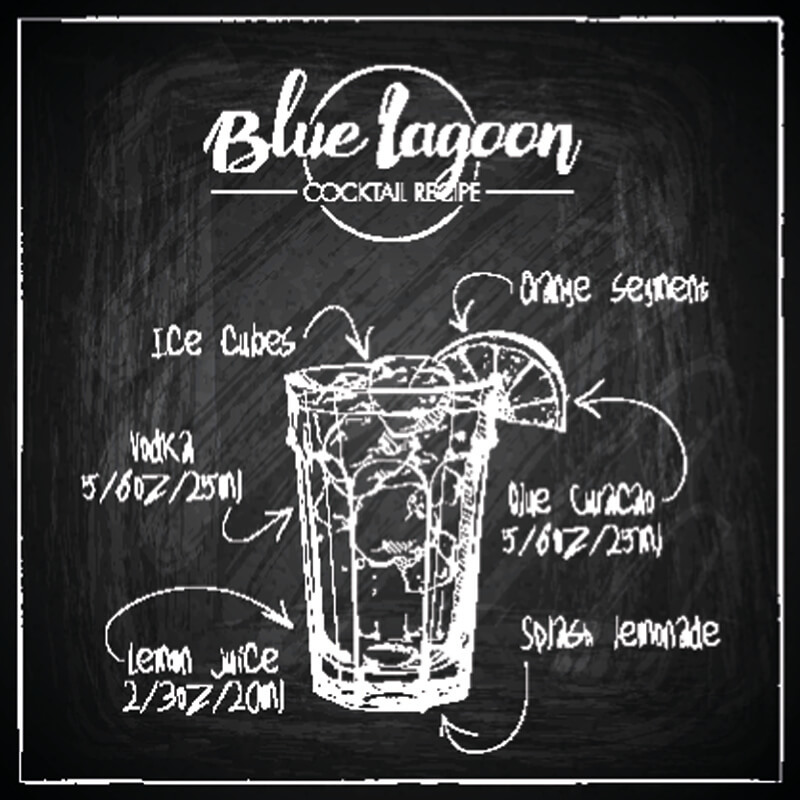 Blue Lagoon
COCKTAIL RECIPE
Orange segment
Ice Cubes
Vodka
5/6oz/25ml
Blue Curacao
5/6oz/25ml
Splash lemonade
Lemon juice
2/3oz/20ml